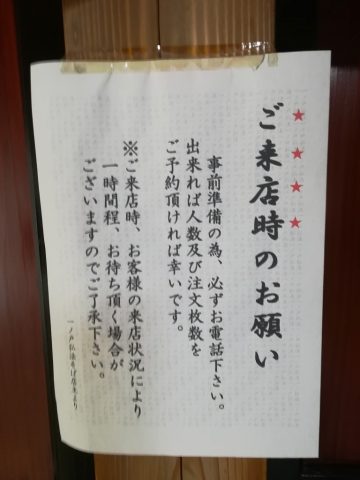 ご来店時のお願い
事前準備の為、必ずお電話下さい。
出来れば人数及び注文枚数を
ご予約頂ければ幸いです。
※ご来店時、お客様の来店状況により
一時間程、お待ち頂く場合が
ございますのでご了承下さい。